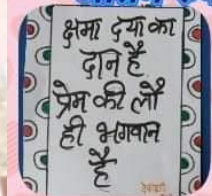 क्षमा दया का
दान है
प्रेम की लौ
ही भगवान
है